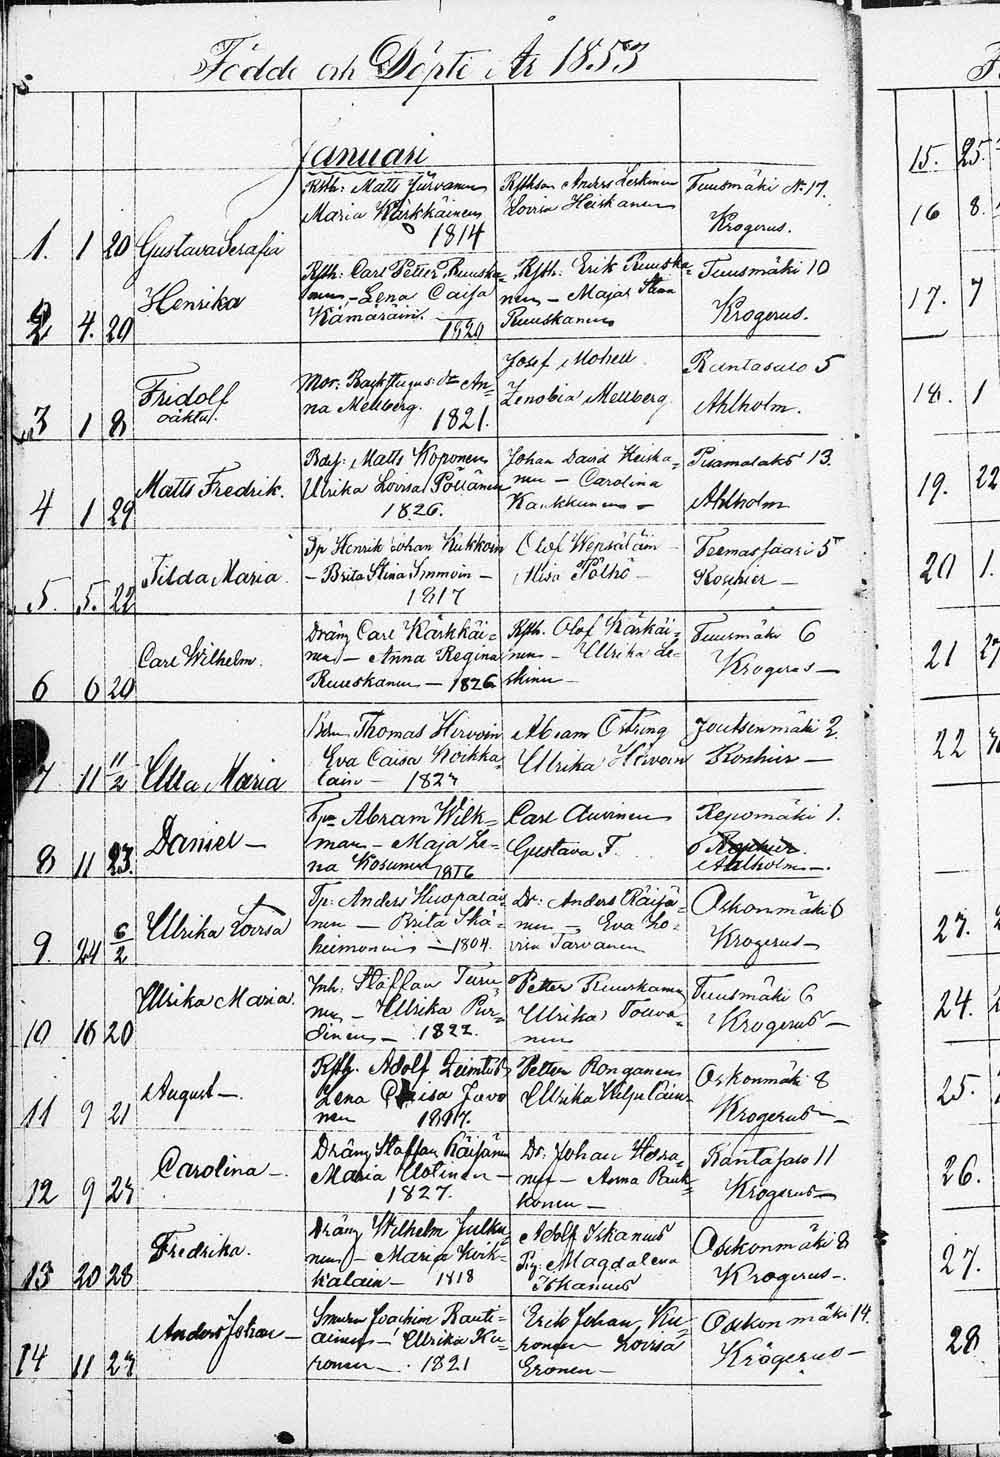 Födde och Döpte År 1853
Januari
1. 1 20 Gustava Serafia
Maria Kärkkäinen
1814
Lovisa Heiskanen
Tuusmäki N 17.
Krogerus.
2 4. 20 Henrika
Rsth: Carl Petter Ruuska=
nen - Lena Caisa
Kämäräin.
1820
Rsth: Erik Ruuska=
nen - Maja Stina
Ruuskanen
Tuusmäki 10
Krogerus.
3 1 8 Fridolf
oäkta.
na Mellberg. 1821.
Josef
Zenobia Mellberg
Rantasalo 5
Ahlholm.
4 1 29 Matts Fredrik.
Matts Koponen
Ulrika Lovisa Pöllänen
1826.
Johan David Heiska=
nen - Carolina
Kaukkunen -
13.
Ahlholm
5. 5. 22 Tilda Maria.
Tp Henrik Johan Kukkoin
- Brita Stina Immoin -
1817
Olof Wepsäläin -
5
6 6 20 Carl Wilhelm.
Dräng Carl Kärkkäi=
nen - Anna Regina
Ruuskanen - 1826
Rsth. Olof Kärkäi=
nen - Ulrika Le=
skinen -
Tuusmäki 6
Krogerus -
7 11 11/2 Ulla Maria
Thomas Hirvoin
Eva Caisa Koikka
lain - 1827
Abram Östring
Ulrika Hirvoin
Joutsenmäki 2.
8 11 23. Daniel -
Abram Wilk=
man - Maja Le=
na Kosunen 1816
Carl Auvinen
Gustava F.
Repomäki 1.
Ahlholm -
9. 24 6/2 Ulrika Lovisa
Tp: Anders Huopalai
nen - Brita Ikä=
heimonen - 1804.
Dr: Anders Räisä=
nen - Eva Lo=
visa Tarvanen
Oskonmäki 6
Krogerus -
10 16 20 Ulrika Maria.
Inh: Staffan Turu=
nen - Ulrika Pur=
sinen - 1822.
Petter Ruuskanen
Ulrika Touva=
nen
Tuusmäki 6
Krogerus -
11 9 21 August -
Rsth. Adolf
Lena Caisa Javo
nen 1817.
Petter Ronganen
Ulrika Wiljalain
Oskonmäki 8
Krogerus -
12 9 27 Carolina -
Dräng Staffan Räisänen
Maria Utoinen -
1827.
Dr. Johan
nen - Anna Pauk=
konen -
Rantasalo 11
Krogerus -
13 20 28 Fredrika.
Dräng Wilhelm Julku
nen - Maria Koik=
kalain - 1818
Adolf Iskanius
Pig: Magdalena
Iskanius
Oskonmäki 8
Krogerus -.
14 11 27 Anders Johan -
Joachim Rauti=
ainen - Ulrika Ku=
ronen - 1821
Erik Johan Ku=
ronen Lovisa
Eronen -
Oskonmäki 14.
Krogerus -
15. 25.
16 8.
17. 7
18. 1
19. 22
20 1.
21 27
22
23.
24.
25.
26.
27.
28